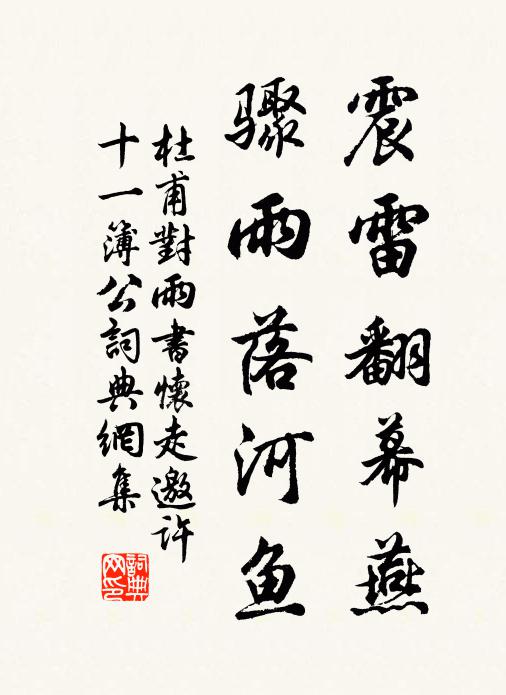 震雷翻幕燕
驟雨落河鱼
杜甫對雨書懷走邀許
十一簿公詞典網集
詞典
网印